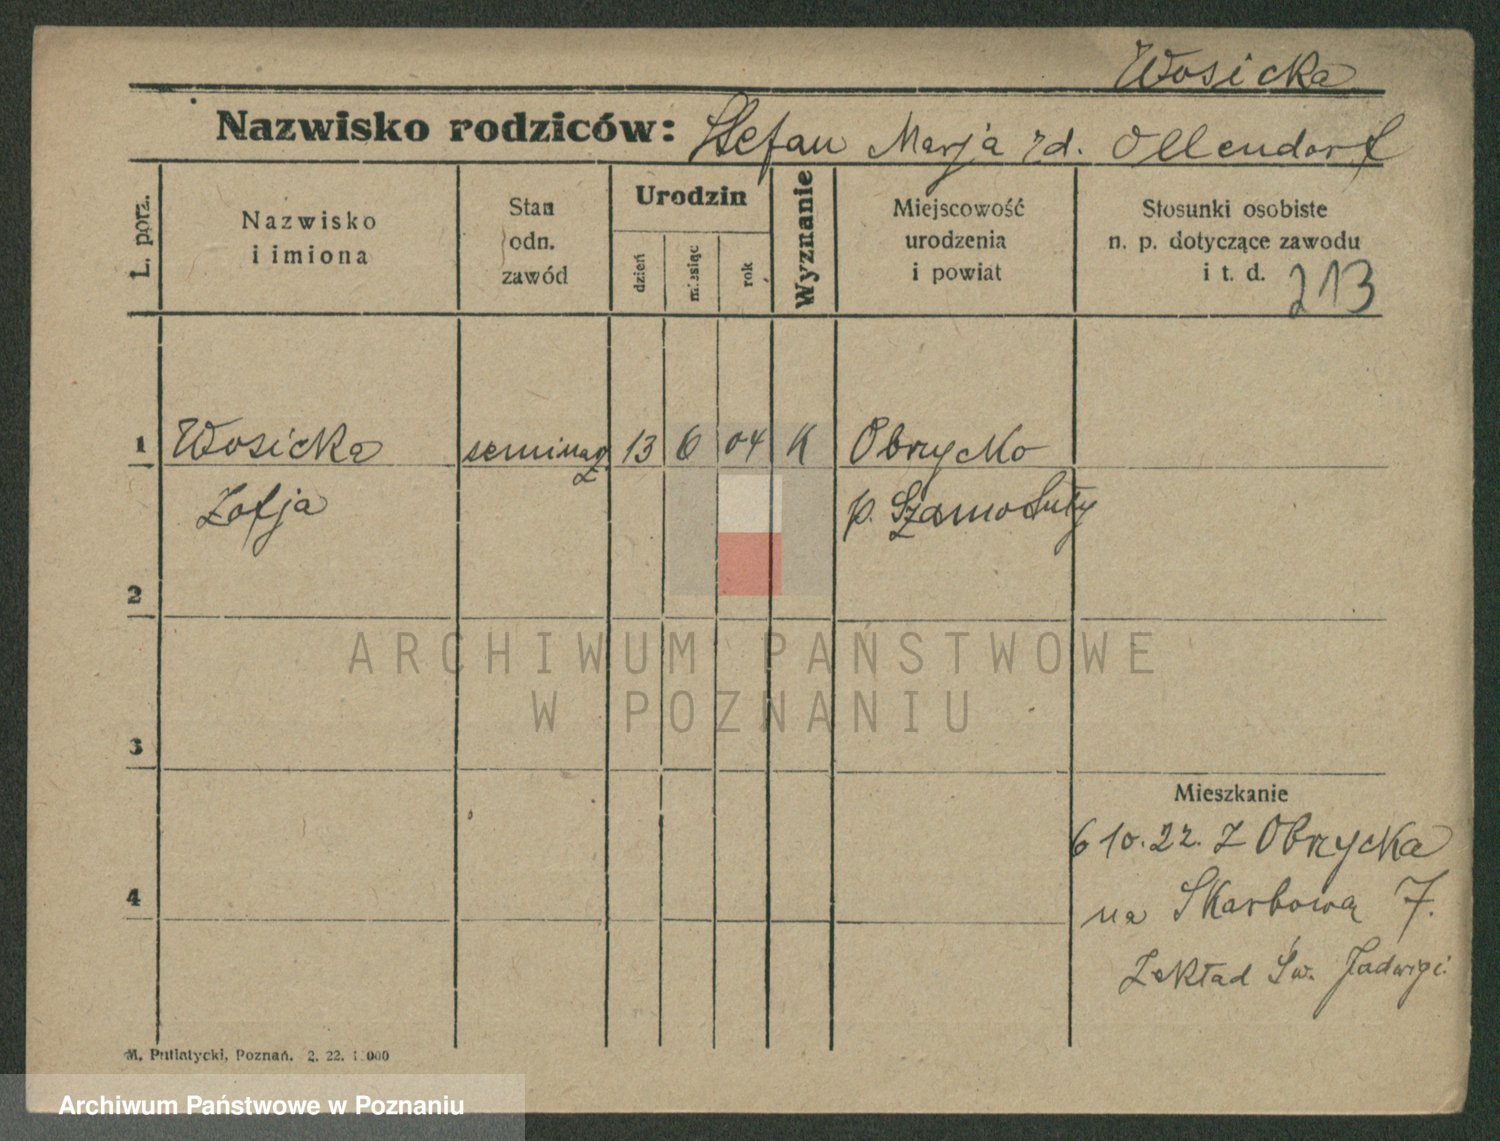 Wosicka
Nazwisko rodziców: Stefan Marja zd. Ollendorf
L. porz.
Nazwisko
i imiona
Stan
odn.
zawód
Urodzin
dzień
miesiąc
rok
Wyznanie
Miejscowość
urodzenia
i powiat
Stosunki osobiste
n. p. dotyczące zawodu
i t. d. 213
1 Wosicka seminarz 13 6 04 K Obrycko
Zofja p. Szamotuły
2
3
Mieszkanie
6 10. 22. Z Obrycka
4 na Skarbową 7.
Zakład Św. Jadwigi.
M. Putiatycki, Poznań. 2. 22.
ARCHIWUM PAŃSTWOWE
W POZNANIU
Archiwum Państwowe w Poznaniu